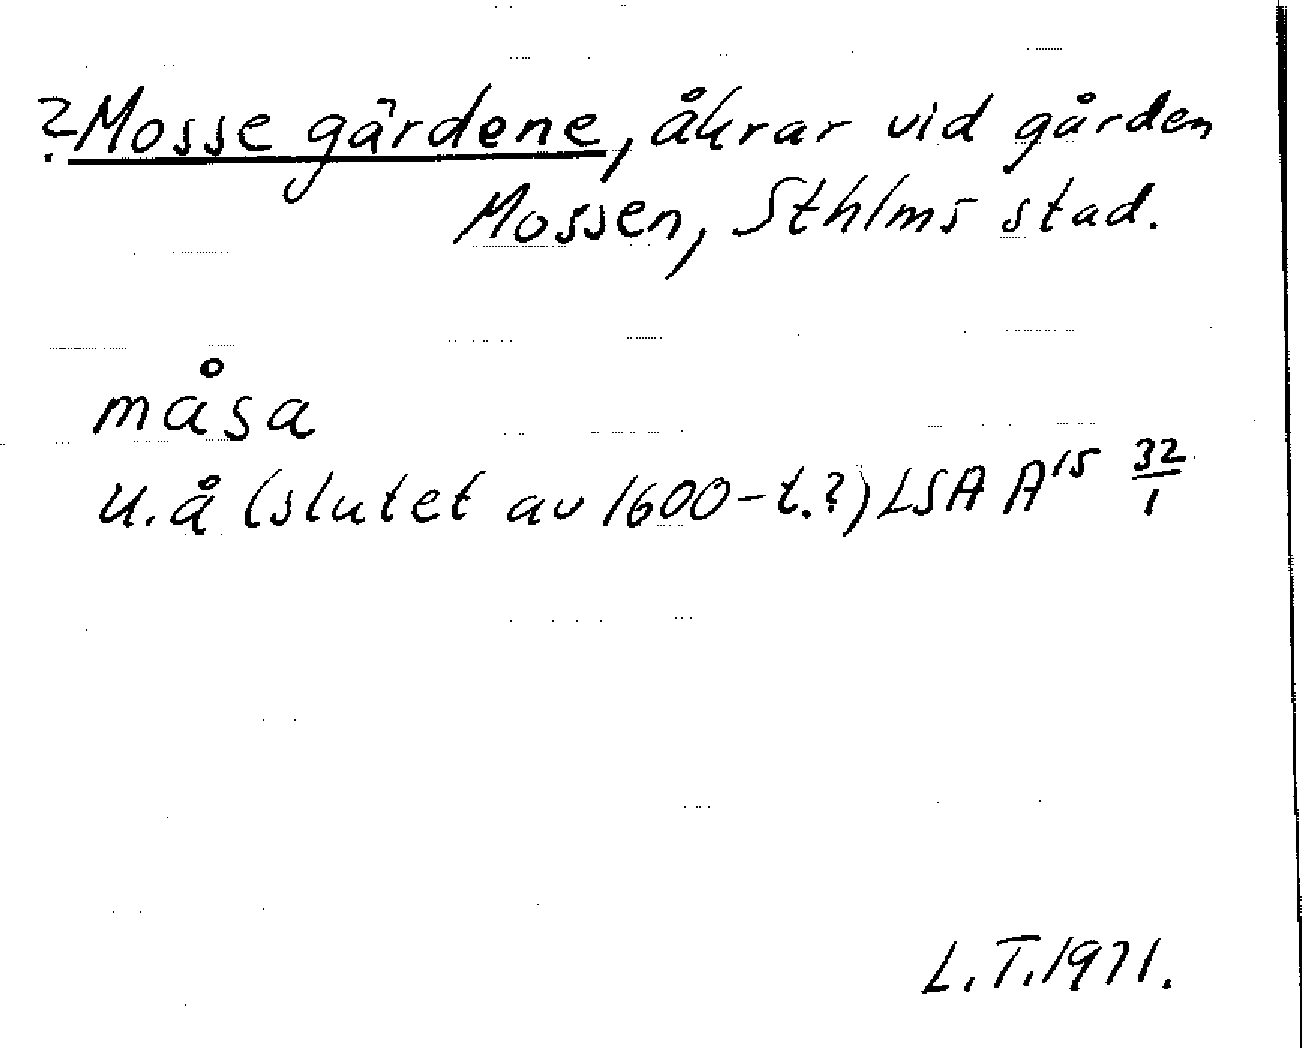 ?Mosse gärdene, åkrar vid gården
Mossen, Sthlms stad.
måsa
u.å (slutet av 1600-t.?) LSA A¹⁵ 32/1
L.T. 1971.